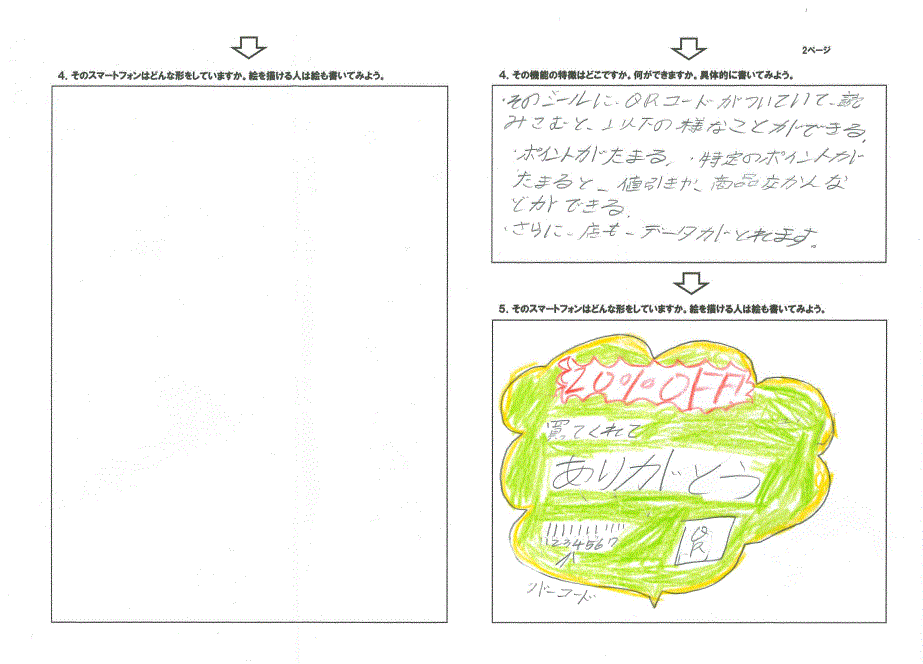 4．そのスマートフォンはどんな形をしていますか。絵を描ける人は絵も書いてみよう。
2ページ
4．その機能の特徴はどこですか。何ができますか。具体的に書いてみよう。
・そのシールに、QRコードがついていて、読
みこむと、以下の様なことができる。
・ポイントがたまる。・特定のポイントが
たまると、値引きや、商品交かんな
どができる。
・さらに、店も、データがとれます。
5．そのスマートフォンはどんな形をしていますか。絵を描ける人は絵も書いてみよう。
20%OFF!
買ってくれて
ありがとう
1234567
QR
バーコード